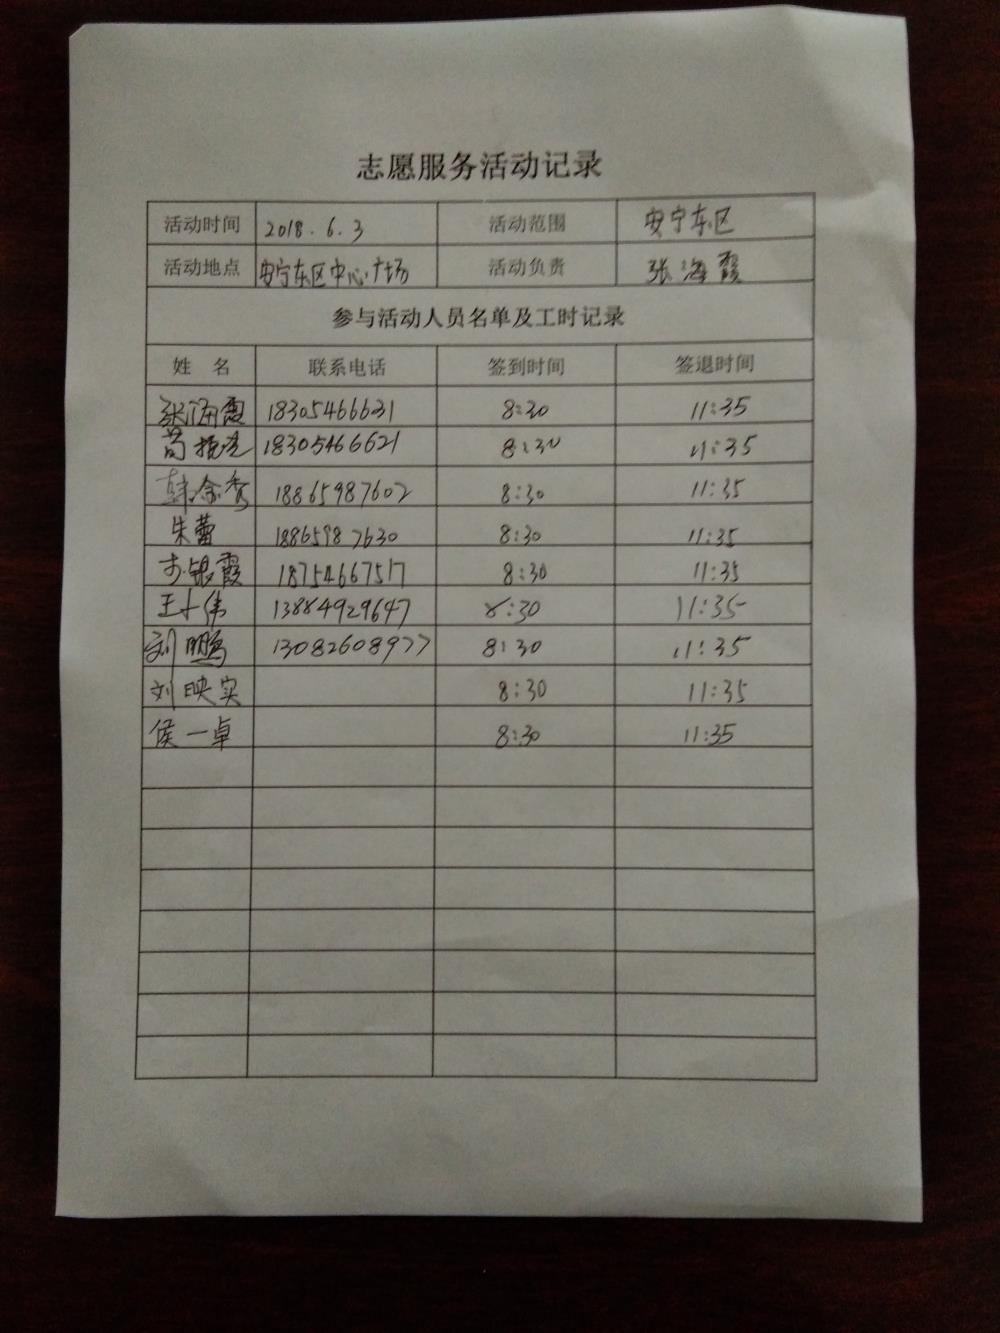 志愿服务活动记录
活动时间 2018.6.3 活动范围 安宁东区
活动地点 安宁东区中心广场 活动负责 张海霞
参与活动人员名单及工时记录
姓 名 联系电话 签到时间 签退时间
张海霞 18305466631 8:30 11:35
18305466621 8:30 11:35
18865987602 8:30 11:35
朱蕾 18865987630 8:30 11:35
银霞 18754667517 8:30 11:35
王小伟 13884929647 8:30 11:35
刘鹏 13082608977 8:30 11:35
刘映实 8:30 11:35
侯一卓 8:30 11:35